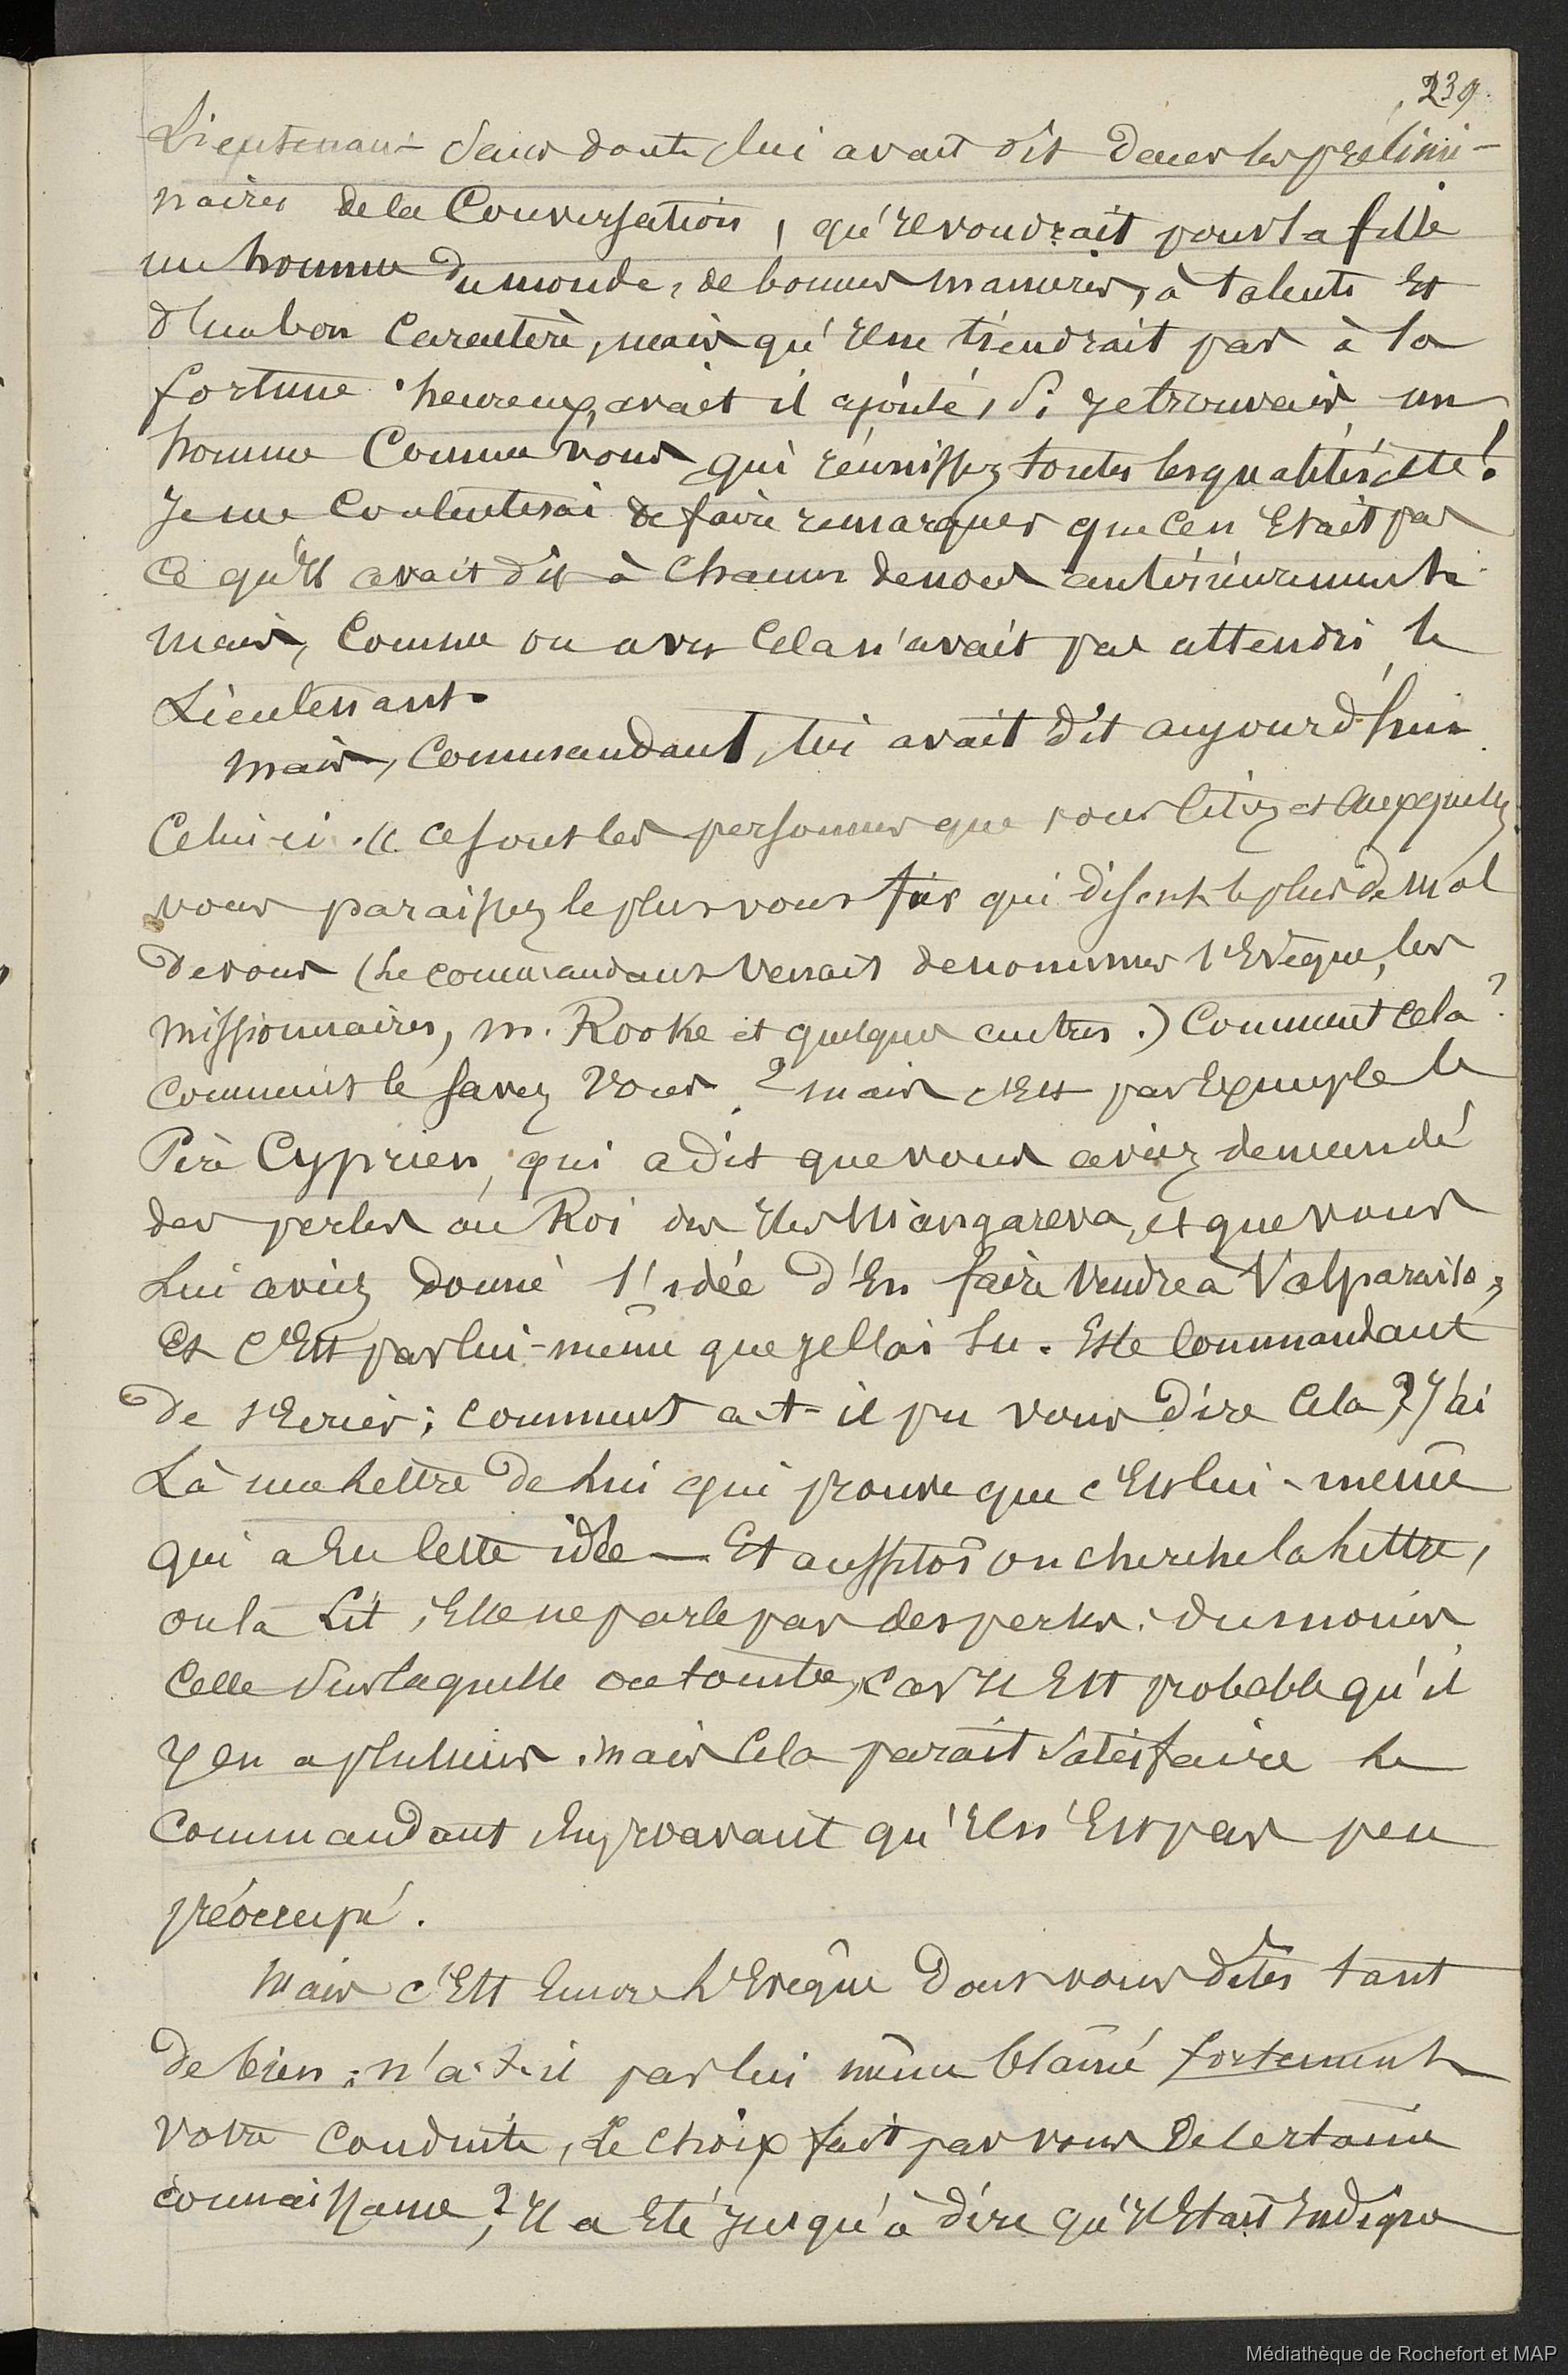 239
Lieutenant sans doute, lui avait dit dans les prélimi-
naires de la Conversation, qu'il voudrait pour sa fille
un homme du monde, de bonnes manières, à talents et
d'un bon Caractère, mais qu'il ne tiendrait pas à la
fortune. heureux, avait il ajouté, si je trouvais un
homme Comme vous qui réunissez toutes les qualités ette!
Je me Contenterai de faire remarquer que Cen Etait pas
Ce qu'il avait dit à Chacun de nous antérieurement.
mais, Comme on a vu Cela n'avait pas attendri le
Lieutenant.
mais, Commandant, lui avait dit aujourd'hui
Celui-ci. « Ce sont les personnes que vous Citez et auxquelles
vous paraissez le plus vous fier qui disent le plus de mal
de vous (Le commandant venait de nommer l'Evêque, les
missionnaires, m. Rooke et quelques autres.) Comment Cela?
comment le savez vous? mais c'Est par Exemple le
Père Cyprien, qui a dit que vous aviez demandé
des perles au Roi des Iles Mangareva, et que vous
Lui aviez donné l'idée d'En faire vendre à Valparaiso,
Et C'Est par lui-même que je l'ai su. Et le Commandant
de s'Ecrier; comment a-t-il pu vous dire Cela? J'ai
Là une Lettre de Lui qui prouve que c'Est lui-même
qui a Eu Cette idée — Et aussitôt on cherche la Lettre,
on la Lit, Elle ne parle pas des perles. du moins
Celle sur laquelle on tombe, car il Est probable qu'il
y en a plusieurs. mais Cela parait satisfaire le
Commandant En prouvant qu'il n'Est pas peu
préoccupé.
Mais c'Est Encore L'Evêque Dont vous dites tant
de bien; n'a-t-il pas lui même blâmé fortement
votre Conduite, Le choix fait par vous de Certaine
connaissance? Il a Eté jusqu'à dire qu'il Etait Indigne
Médiathèque de Rochefort et MAP